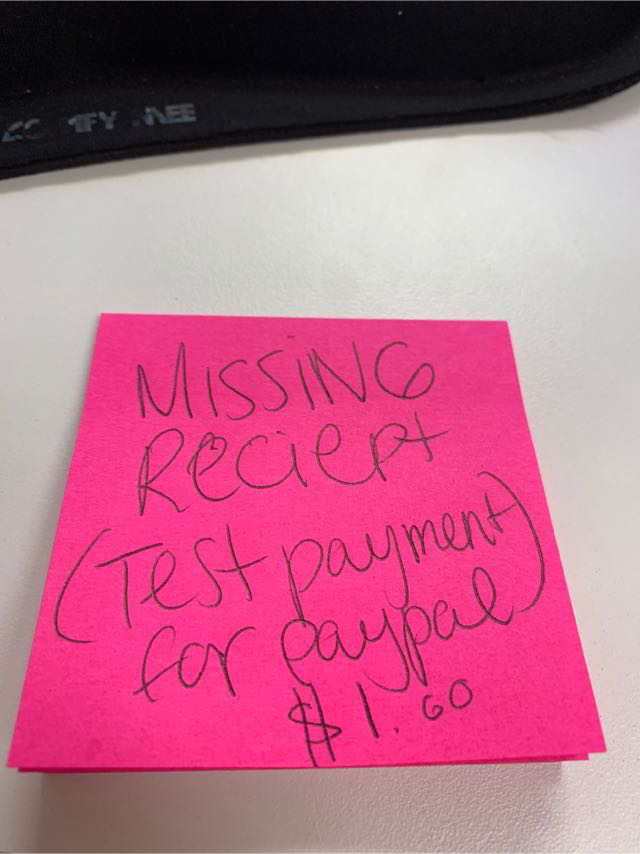 MISSING
Reciept
(Test payment)
for paypal
$1.60